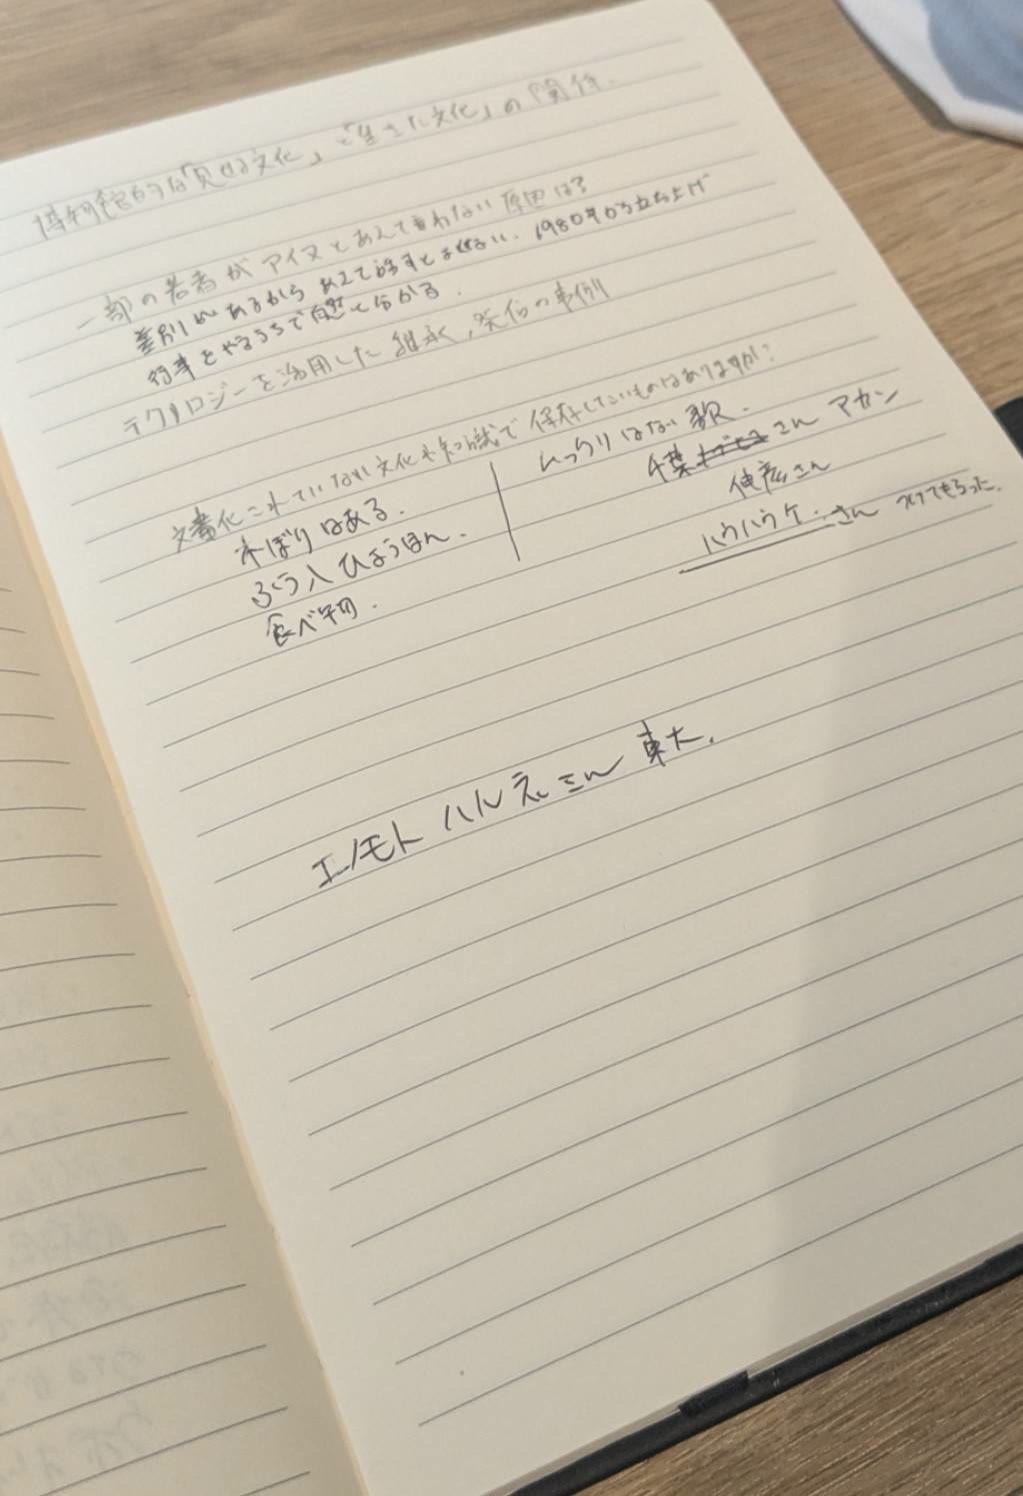 博物館的な「見せる文化」と「生きた文化」の関係.
一部の若者がアイヌとあえて言わない原因は?
差別があるから あえて話すとよくない. 1980年から立ち上げ
行事をやるうちで自然と分かる.
テクノロジーを活用した継承,発信の事例
文書化されていない文化や知識で保存したいものはありますか?
木ぼりはある.
ふう入ひょうほん.
食べ物.
しっかりはない 歌.
千葉 さん アカン
伸彦さん
ハウハウケ さん つけてもらった.
エノモト ハルネさん 東大.